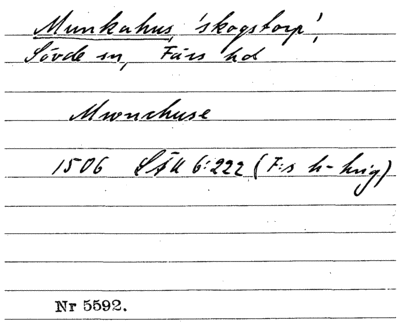 Munkahus, 'skogstorp',
Sövde sn, Färs hd
Mwnchuse
1506 LSU 6:222 (F:s h- krig)
Nr 5592.